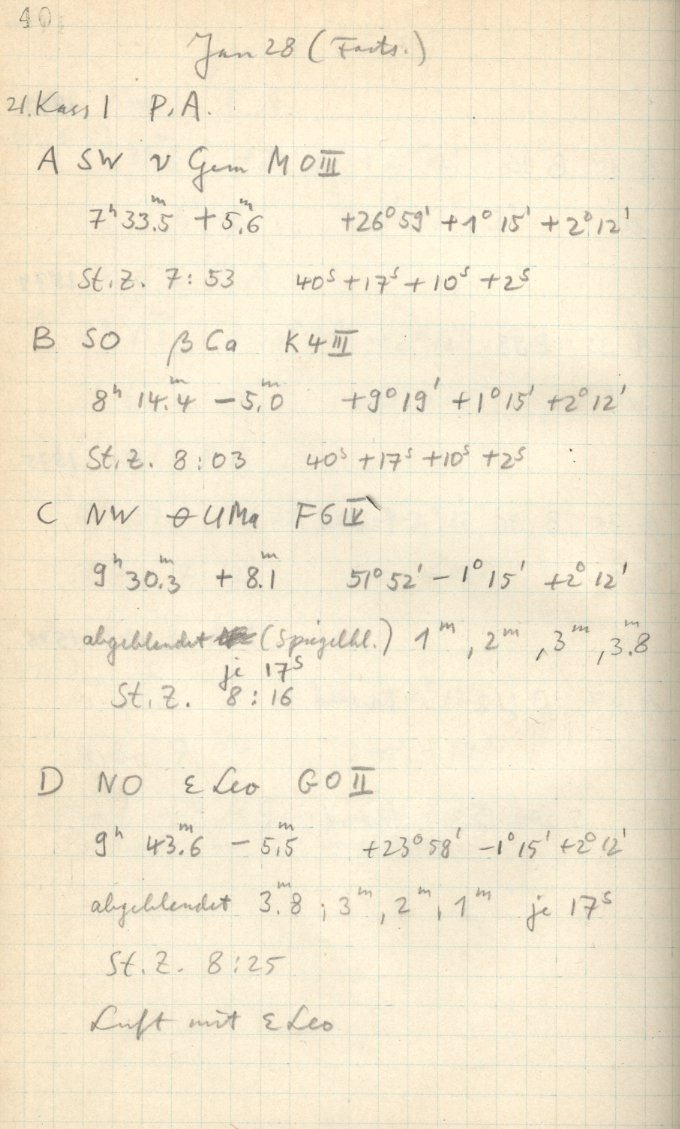 40
Jan 28 (Forts.)
21. Kass I P.A.
A SW υ Gem M0III
7ʰ 33.ᵐ5 + 5.ᵐ6 +26°59' +1°15' +2°12'
St.Z. 7:53 40ˢ +17ˢ +10ˢ +2ˢ
B SO β Ca K4III
8ʰ 14.ᵐ4 − 5.ᵐ0 +9°19' +1°15' +2°12'
St.Z. 8:03 40ˢ +17ˢ +10ˢ +2ˢ
C NW θ UMa F6IV
9ʰ 30.ᵐ3 + 8.ᵐ1 51°52' − 1°15' +2°12'
abgeblendet (Spiegelbl.) 1ᵐ, 2ᵐ, 3ᵐ, 3.ᵐ8
je 17ˢ
St.Z. 8:16
D NO ε Leo G0II
9ʰ 43.ᵐ6 − 5.ᵐ5 +23°58' −1°15' +2°12'
abgeblendet 3.ᵐ8; 3ᵐ, 2ᵐ, 1ᵐ je 17ˢ
St.Z. 8:25
Luft mit ε Leo